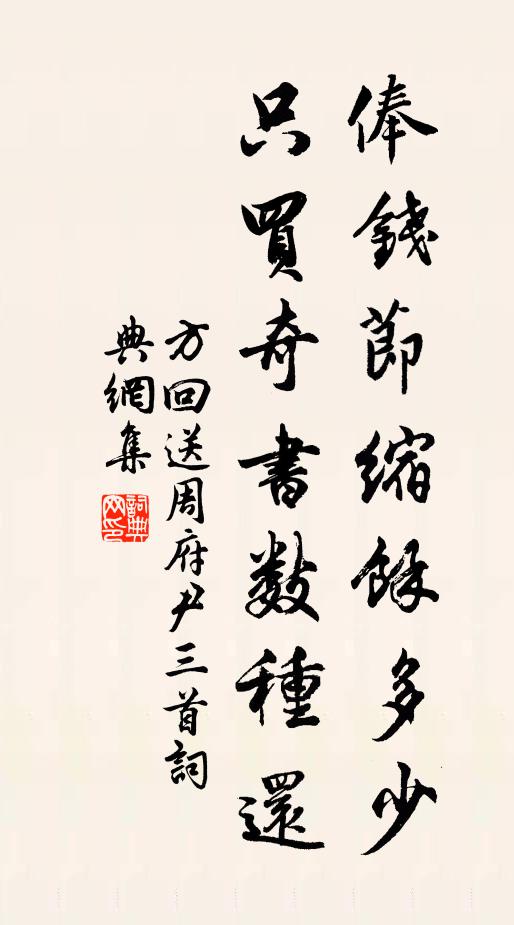 俸錢節縮餘多少
只買奇書数種還
方回送周府尹三首詞
典網集
詞典
网印